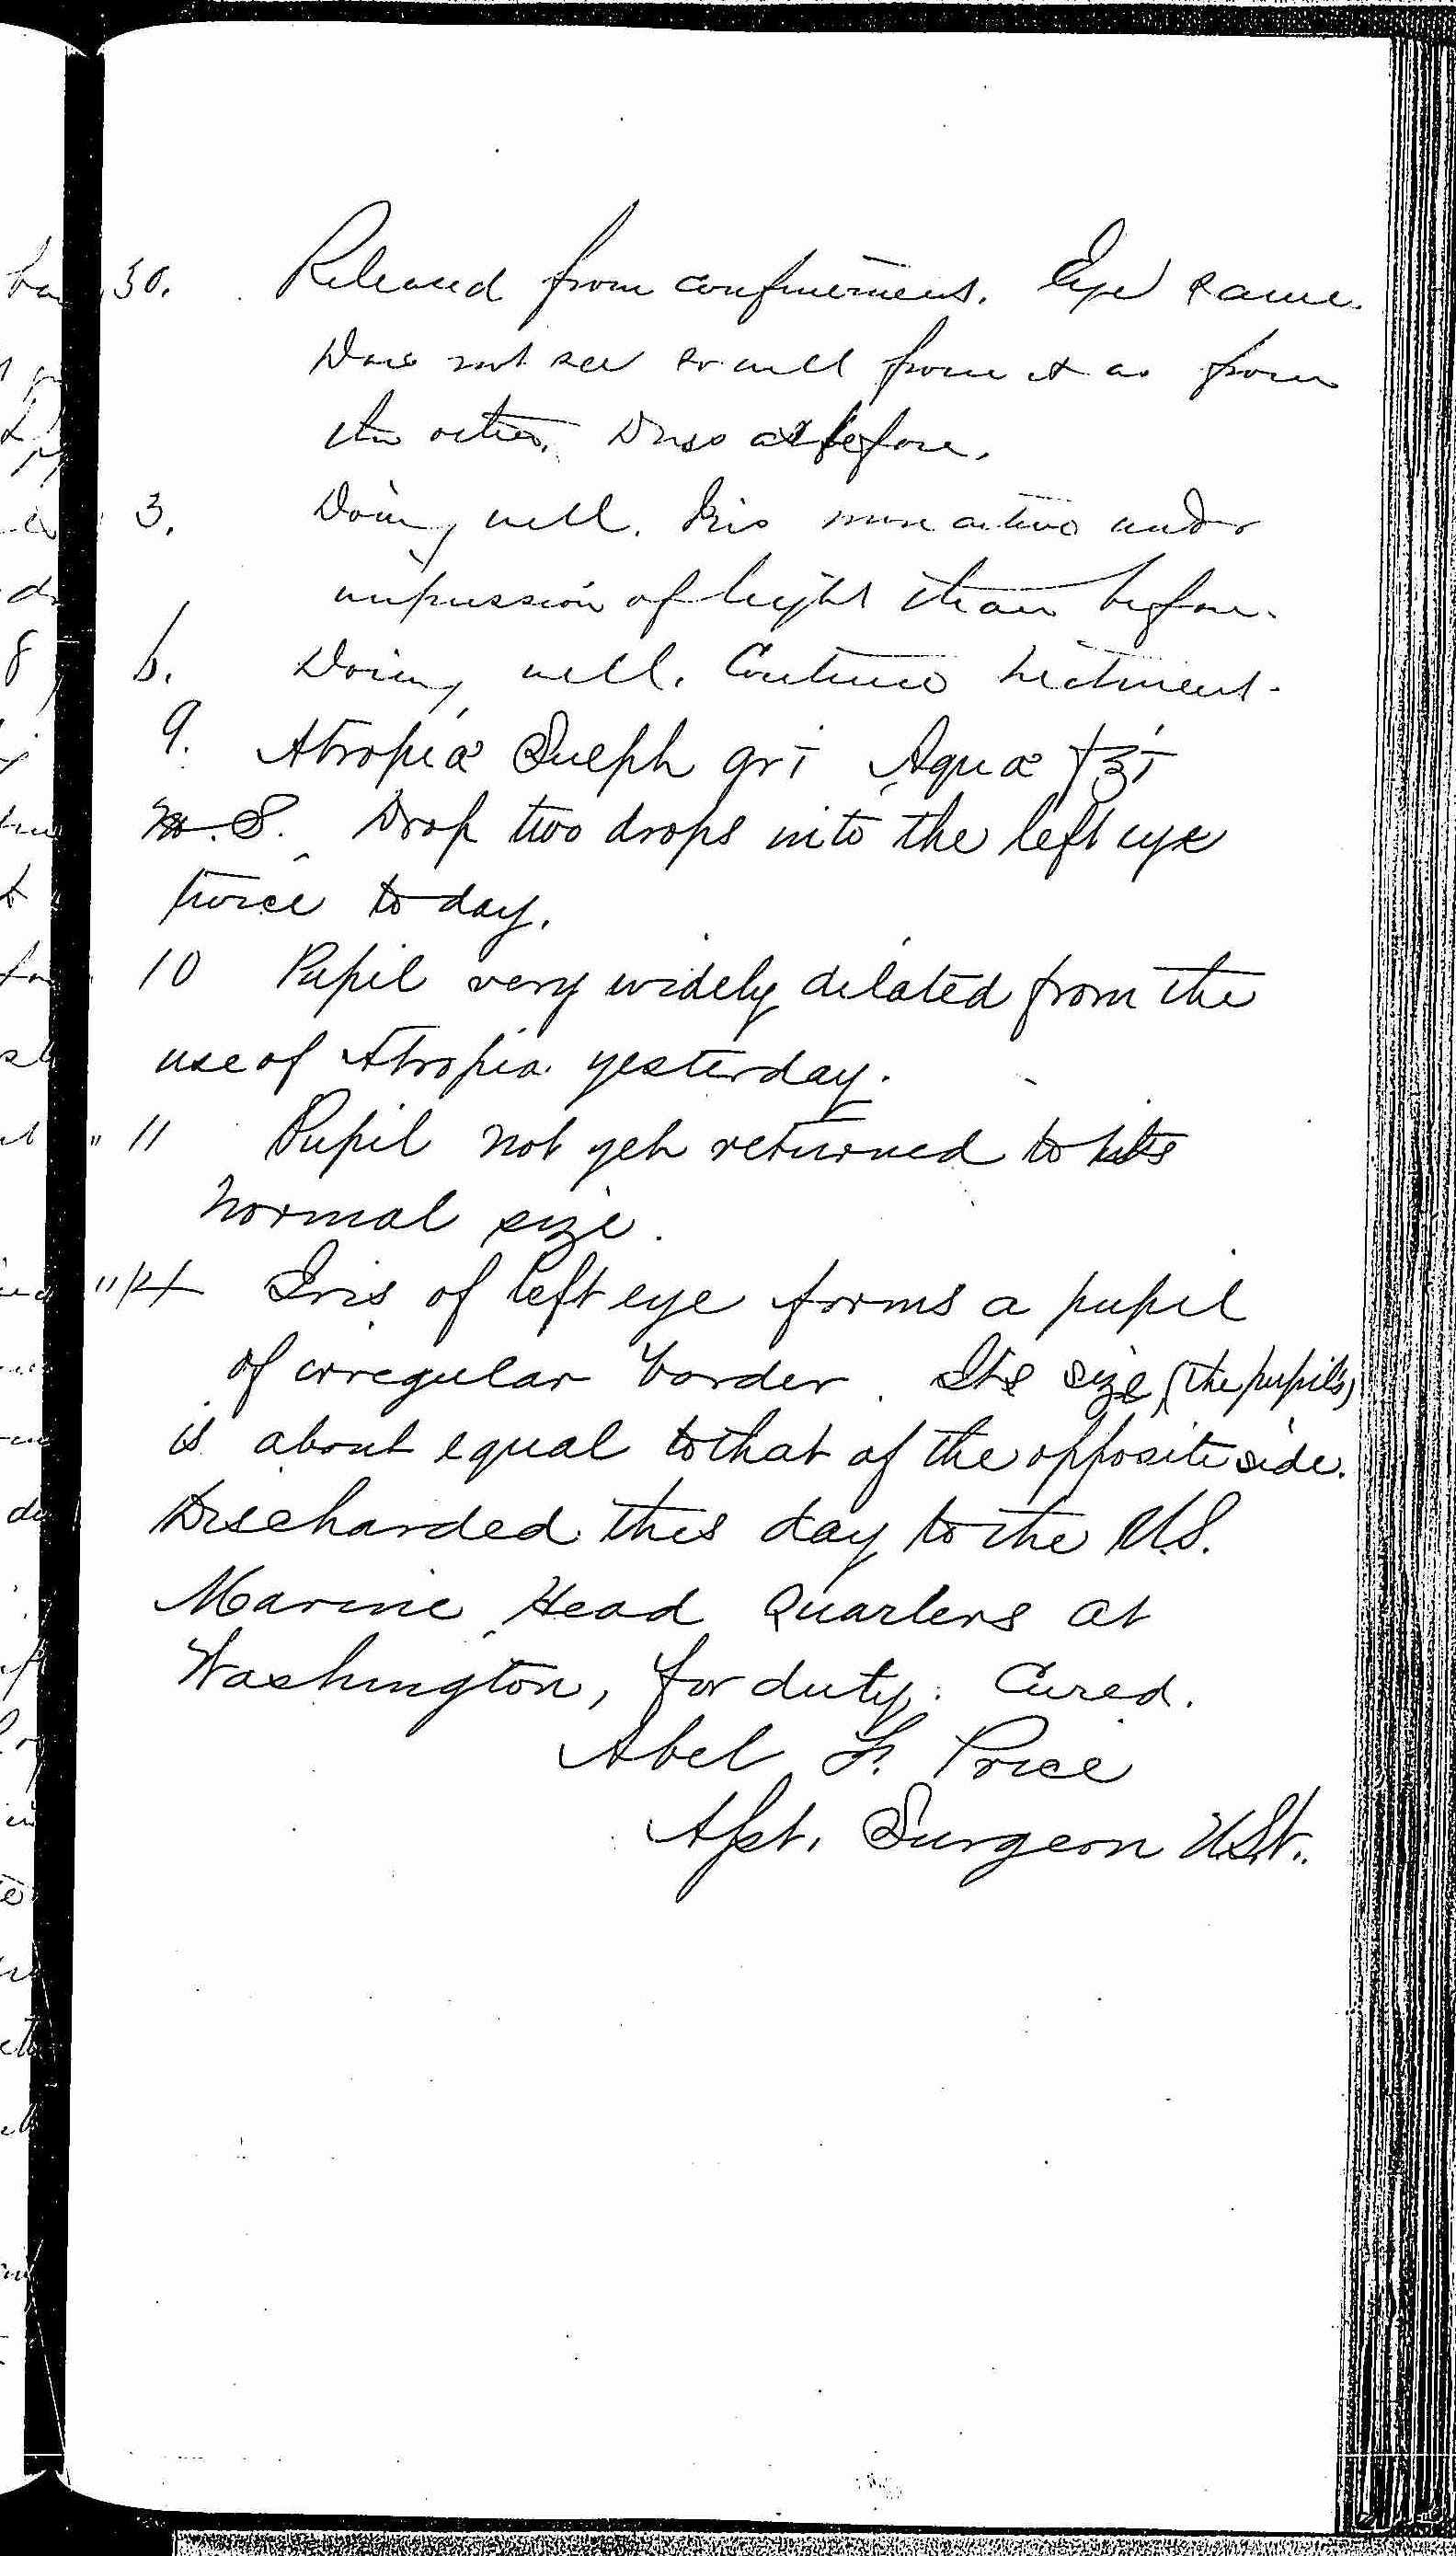 30. Released from confinement. Eye same.
Does not see so well from it as from
the other. Dress as before.
3. Doing well. Iris more active under
impression of light than before.
6. Doing well. Continue treatment.
9. Atropiæ Sulph gr i Aquæ f℥i
M. S. Drop two drops into the left eye
twice to day.
10 Pupil very widely dilated from the
use of Atropia yesterday.
" 11 Pupil not yet returned to its
normal size.
" 14 Iris of left eye forms a pupil
of irregular border. Its size, (the pupils)
is about equal to that of the opposite side.
Discharded this day to the U.S.
Marine Head Quarters at
Washington, for duty. Cured.
Abel F. Price
Asst. Surgeon U.S.N.